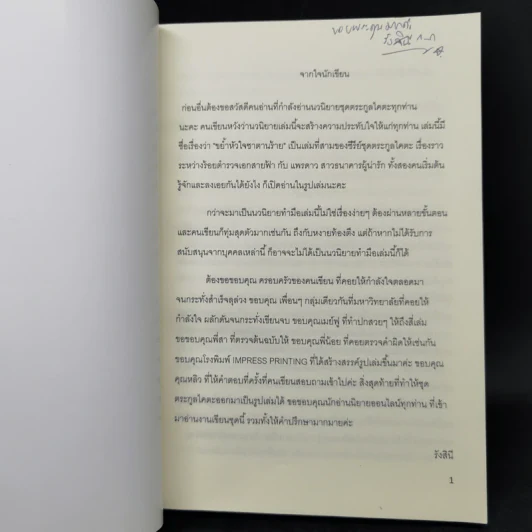 ขอบพระคุณมากค่ะ
รังสินี
จากใจนักเขียน
ก่อนอื่นต้องขอสวัสดีคนอ่านที่กำลังอ่านนวนิยายชุดตระกูลไคตะทุกท่าน
นะคะ คนเขียนหวังว่านวนิยายเล่มนี้จะสร้างความประทับใจให้แก่ทุกท่าน เล่มนี้มี
ชื่อเรื่องว่า "ขย้ำหัวใจซาตานร้าย" เป็นเล่มที่สามของซีรีย์ชุดตระกูลไคตะ เรื่องราว
ระหว่างร้อยตำรวจเอกสายฟ้า กับ แพรดาว สาวธนาคารผู้น่ารัก ทั้งสองคนเริ่มต้น
รู้จักและลงเอยกันได้ยังไง ก็เปิดอ่านในรูปเล่มนะคะ
กว่าจะมาเป็นนวนิยายทำมือเล่มนี้ไม่ใช่เรื่องง่ายๆ ต้องผ่านหลายขั้นตอน
และคนเขียนก็ทุ่มสุดตัวมากเช่นกัน ถึงกับหงายท้องตึง แต่ถ้าหากไม่ได้รับการ
สนับสนุนจากบุคคลเหล่านี้ ก็อาจจะไม่ได้เป็นนวนิยายทำมือเล่มนี้ก็ได้
ต้องขอขอบคุณ ครอบครัวของคนเขียน ที่คอยให้กำลังใจตลอดมา
จนกระทั่งสำเร็จลุล่วง ขอบคุณ เพื่อนๆ กลุ่มเดียวกันที่มหาวิทยาลัยที่คอยให้
กำลังใจ ผลักดันจนกระทั่งเขียนจบ ขอบคุณเมย์ฟู ที่ทำปกสวยๆ ให้ถึงสี่เล่ม
ขอบคุณพี่สา ที่ตรวจต้นฉบับให้ ขอบคุณพี่น้อย ที่คอยตรวจคำผิดให้เช่นกัน
ขอบคุณโรงพิมพ์ IMPRESS PRINTING ที่ได้สร้างสรรค์รูปเล่มขึ้นมาค่ะ ขอบคุณ
คุณหลิว ที่ให้คำตอบที่ครั้งที่คนเขียนสอบถามเข้าไปค่ะ สิ่งสุดท้ายที่ทำให้ชุด
ตระกูลไคตะออกมาเป็นรูปเล่มได้ ขอขอบคุณนักอ่านนิยายออนไลน์ทุกท่าน ที่เข้า
มาอ่านงานเขียนชุดนี้ รวมทั้งให้คำปรึกษามากมายค่ะ
รังสินี
1